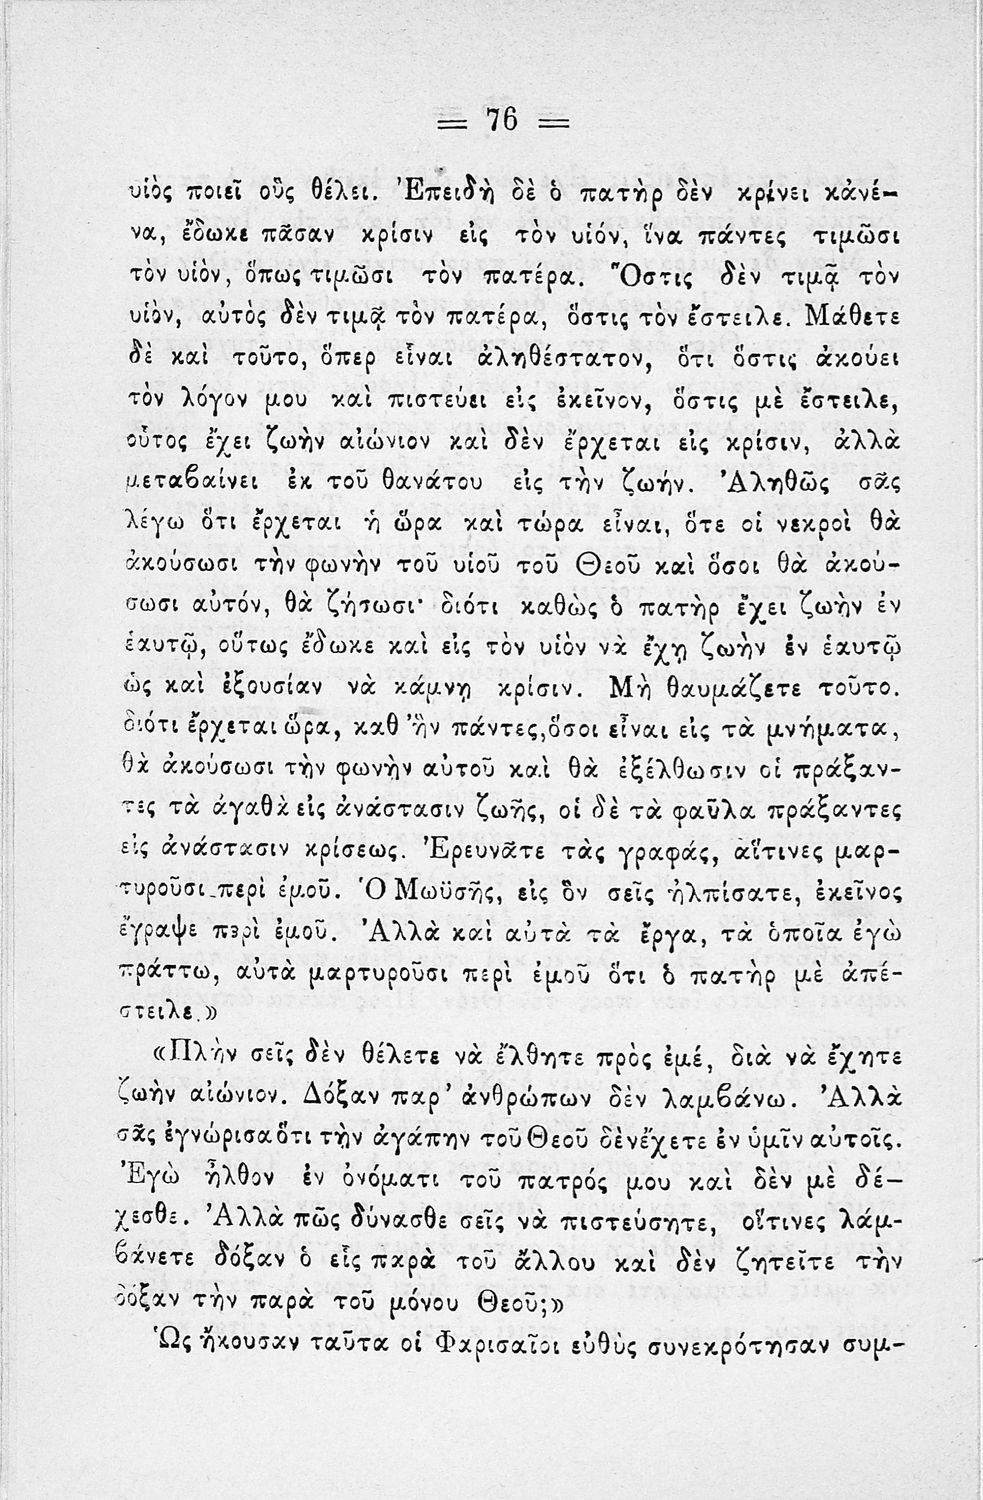 = 76 =
υἱὸς ποιεῖ οὓς θέλει. Ἐπειδὴ δὲ ὁ πατὴρ δὲν κρίνει κἀνέ-
να, ἔδωκε πᾶσαν κρίσιν εἰς τὸν υἱόν, ἵνα πάντες τιμῶσι
τὸν υἱὸν, ὅπως τιμῶσι τὸν πατέρα. Ὅστις δὲν τιμᾷ τὸν
υἱὸν, αὐτὸς δὲν τιμᾷ τὸν πατέρα, ὅστις τὸν ἔστειλε. Μάθετε
δὲ καὶ τοῦτο, ὅπερ εἶναι ἀληθέστατον, ὅτι ὅστις ἀκούει
τὸν λόγον μου καὶ πιστεύει εἰς ἐκεῖνον, ὅστις μὲ ἔστειλε,
οὗτος ἔχει ζωὴν αἰώνιον καὶ δὲν ἔρχεται εἰς κρίσιν, ἀλλὰ
μεταβαίνει ἐκ τοῦ θανάτου εἰς τὴν ζωήν. Ἀληθῶς σᾶς
λέγω ὅτι ἔρχεται ἡ ὥρα καὶ τώρα εἶναι, ὅτε οἱ νεκροὶ θὰ
ἀκούσωσι τὴν φωνὴν τοῦ υἱοῦ τοῦ Θεοῦ καὶ ὅσοι θὰ ἀκού-
σωσι αὐτόν, θὰ ζήσωσι· διότι καθὼς ὁ πατὴρ ἔχει ζωὴν ἐν
ἑαυτῷ, οὕτως ἔδωκε καὶ εἰς τὸν υἱὸν νὰ ἔχῃ ζωὴν ἐν ἑαυτῷ
ὡς καὶ ἐξουσίαν νὰ κάμνῃ κρίσιν. Μὴ θαυμάζετε τοῦτο.
διότι ἔρχεται ὥρα, καθ᾽ ἣν πάντες,ὅσοι εἶναι εἰς τὰ μνήματα,
θὰ ἀκούσωσι τὴν φωνὴν αὐτοῦ καὶ θὰ ἐξέλθωσιν οἱ πράξαν-
τες τὰ ἀγαθὰ εἰς ἀνάστασιν ζωῆς, οἱ δὲ τὰ φαῦλα πράξαντες
εἰς ἀνάστασιν κρίσεως. Ἐρευνᾶτε τὰς γραφάς, αἵτινες μαρ-
τυροῦσι περὶ ἐμοῦ. Ὁ Μωϋσῆς, εἰς ὃν σεῖς ἠλπίσατε, ἐκεῖνος
ἔγραψε περὶ ἐμοῦ. Ἀλλὰ καὶ αὐτὰ τὰ ἔργα, τὰ ὁποῖα ἐγὼ
πράττω, αὐτὰ μαρτυροῦσι περὶ ἐμοῦ ὅτι ὁ πατὴρ μὲ ἀπέ-
στειλε.»
«Πλὴν σεῖς δὲν θέλετε νὰ ἔλθητε πρὸς ἐμέ, διὰ νὰ ἔχητε
ζωὴν αἰώνιον. Δόξαν παρ᾽ ἀνθρώπων δὲν λαμβάνω. Ἀλλὰ
σᾶς ἐγνώρισα ὅτι τὴν ἀγάπην τοῦ Θεοῦ δὲν ἔχετε ἐν ὑμῖν αὐτοῖς.
Ἐγὼ ἦλθον ἐν ὀνόματι τοῦ πατρός μου καὶ δὲν μὲ δέ-
χεσθε. Ἀλλὰ πῶς δύνασθε σεῖς νὰ πιστεύσητε, οἵτινες λάμ-
βάνετε δόξαν ὁ εἷς παρὰ τοῦ ἄλλου καὶ δὲν ζητεῖτε τὴν
δόξαν τὴν παρὰ τοῦ μόνου Θεοῦ;»
Ὡς ἤκουσαν ταῦτα οἱ Φαρισαῖοι εὐθὺς συνεκρότησαν συμ-